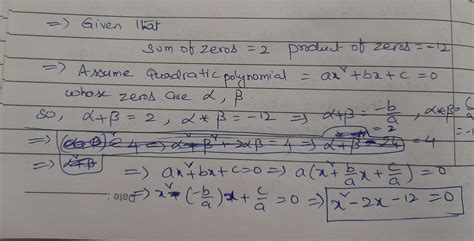 => Given that
sum of zeros = 2 product of zeros = -12
=> Assume Quadratic polynomial = ax²+bx+c=0
whose zeros are α, β.
so, α+β = 2, α*β = -12 => α+β = -b/a, α*β = c/a
= 2
=> = 4 => α²+β²+2αβ = 4 => α²+β²-24 = 4
=> α²+β²
=> ax²+bx+c=0 => a(x²+b/a x+c/a)=0
Date : => x²-(-b/a)x+c/a=0 => x²-2x-12=0